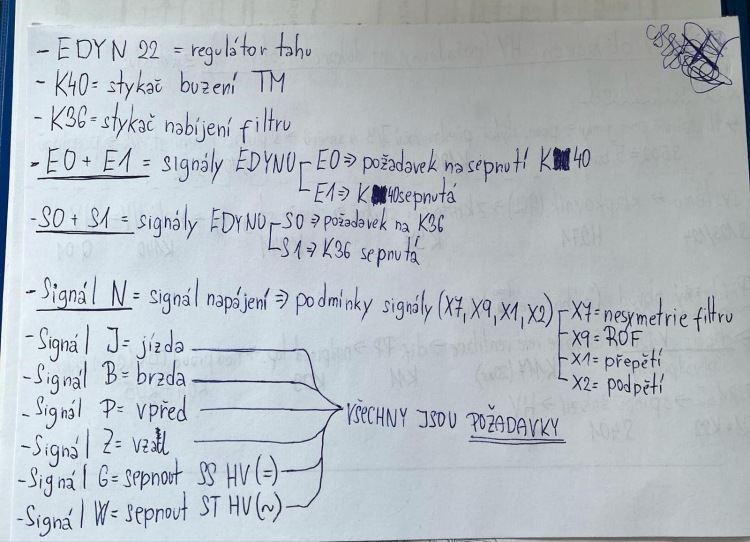 - EDYN 22 = regulátor tahu
- K40 = stykač buzení TM
- K36 = stykač nabíjení filtru
- E0 + E1 = signály EDYNU E0 => požadavek na sepnutí K 40
E1 => K 40 sepnutá
- S0 + S1 = signály EDYNU S0 => požadavek na K36
S1 => K36 sepnutá
- Signál N = signál napájení => podmínky signály (X7, X9, X1, X2) X7 = nesymetrie filtru
X9 = ROF
X1 = přepětí
X2 = podpětí
- Signál J = jízda
- Signál B = brzda
- Signál P = vpřed
VŠECHNY JSOU POŽADAVKY
- Signál Z = vzad
- Signál G = sepnout SS HV (=)
- Signál W = sepnout ST HV (~)